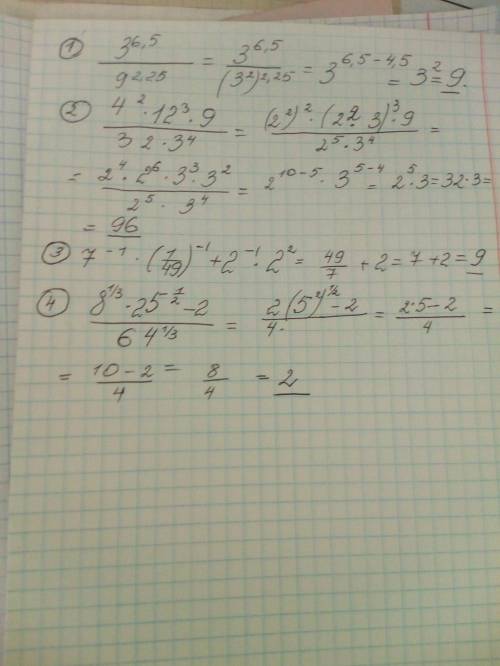 ① 3^6,5 / 9^2,25 = 3^6,5 / (3²)^2,25 = 3^6,5-4,5 = 3² = 9.
② 4² · 12³ · 9 / 32 · 3⁴ = (2²)² · (2² · 3)³ · 9 / 2⁵ · 3⁴ =
= 2⁴ · 2⁶ · 3³ · 3² / 2⁵ · 3⁴ = 2^10-5 · 3^5-4 = 2⁵ · 3 = 32 · 3 =
= 96
③ 7^-1 · (1/49)^-1 + 2^-1 · 2² = 49/7 + 2 = 7 + 2 = 9
④ 8^1/3 · 25^1/2 - 2 / 64^1/3 = 2(5²)^1/2 - 2 / 4· = 2·5-2 / 4 =
= 10-2 / 4 = 8/4 = 2